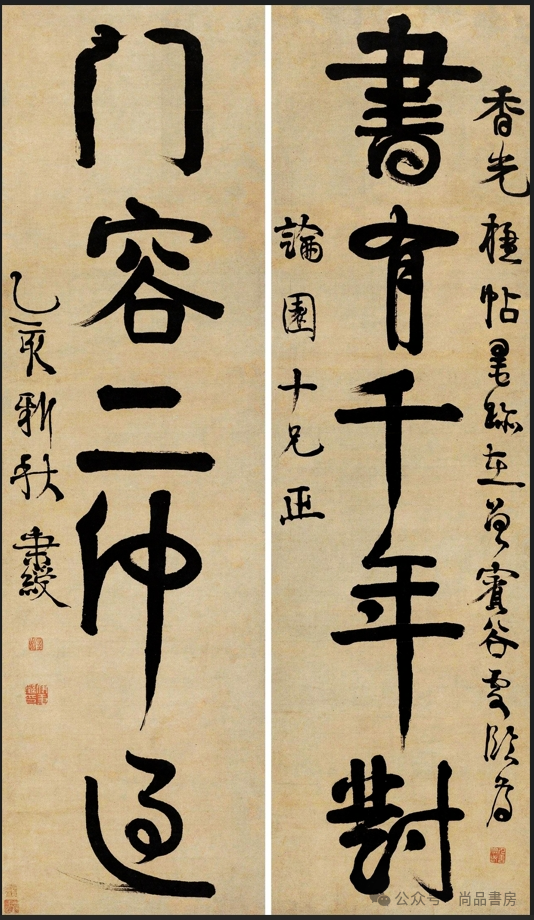 香光楹帖墨跡在曾賓谷處臨為
書有千年對
論園十兄正
门容二仲過
乙亥新秋 秉綬
公众号 · 尚品書房